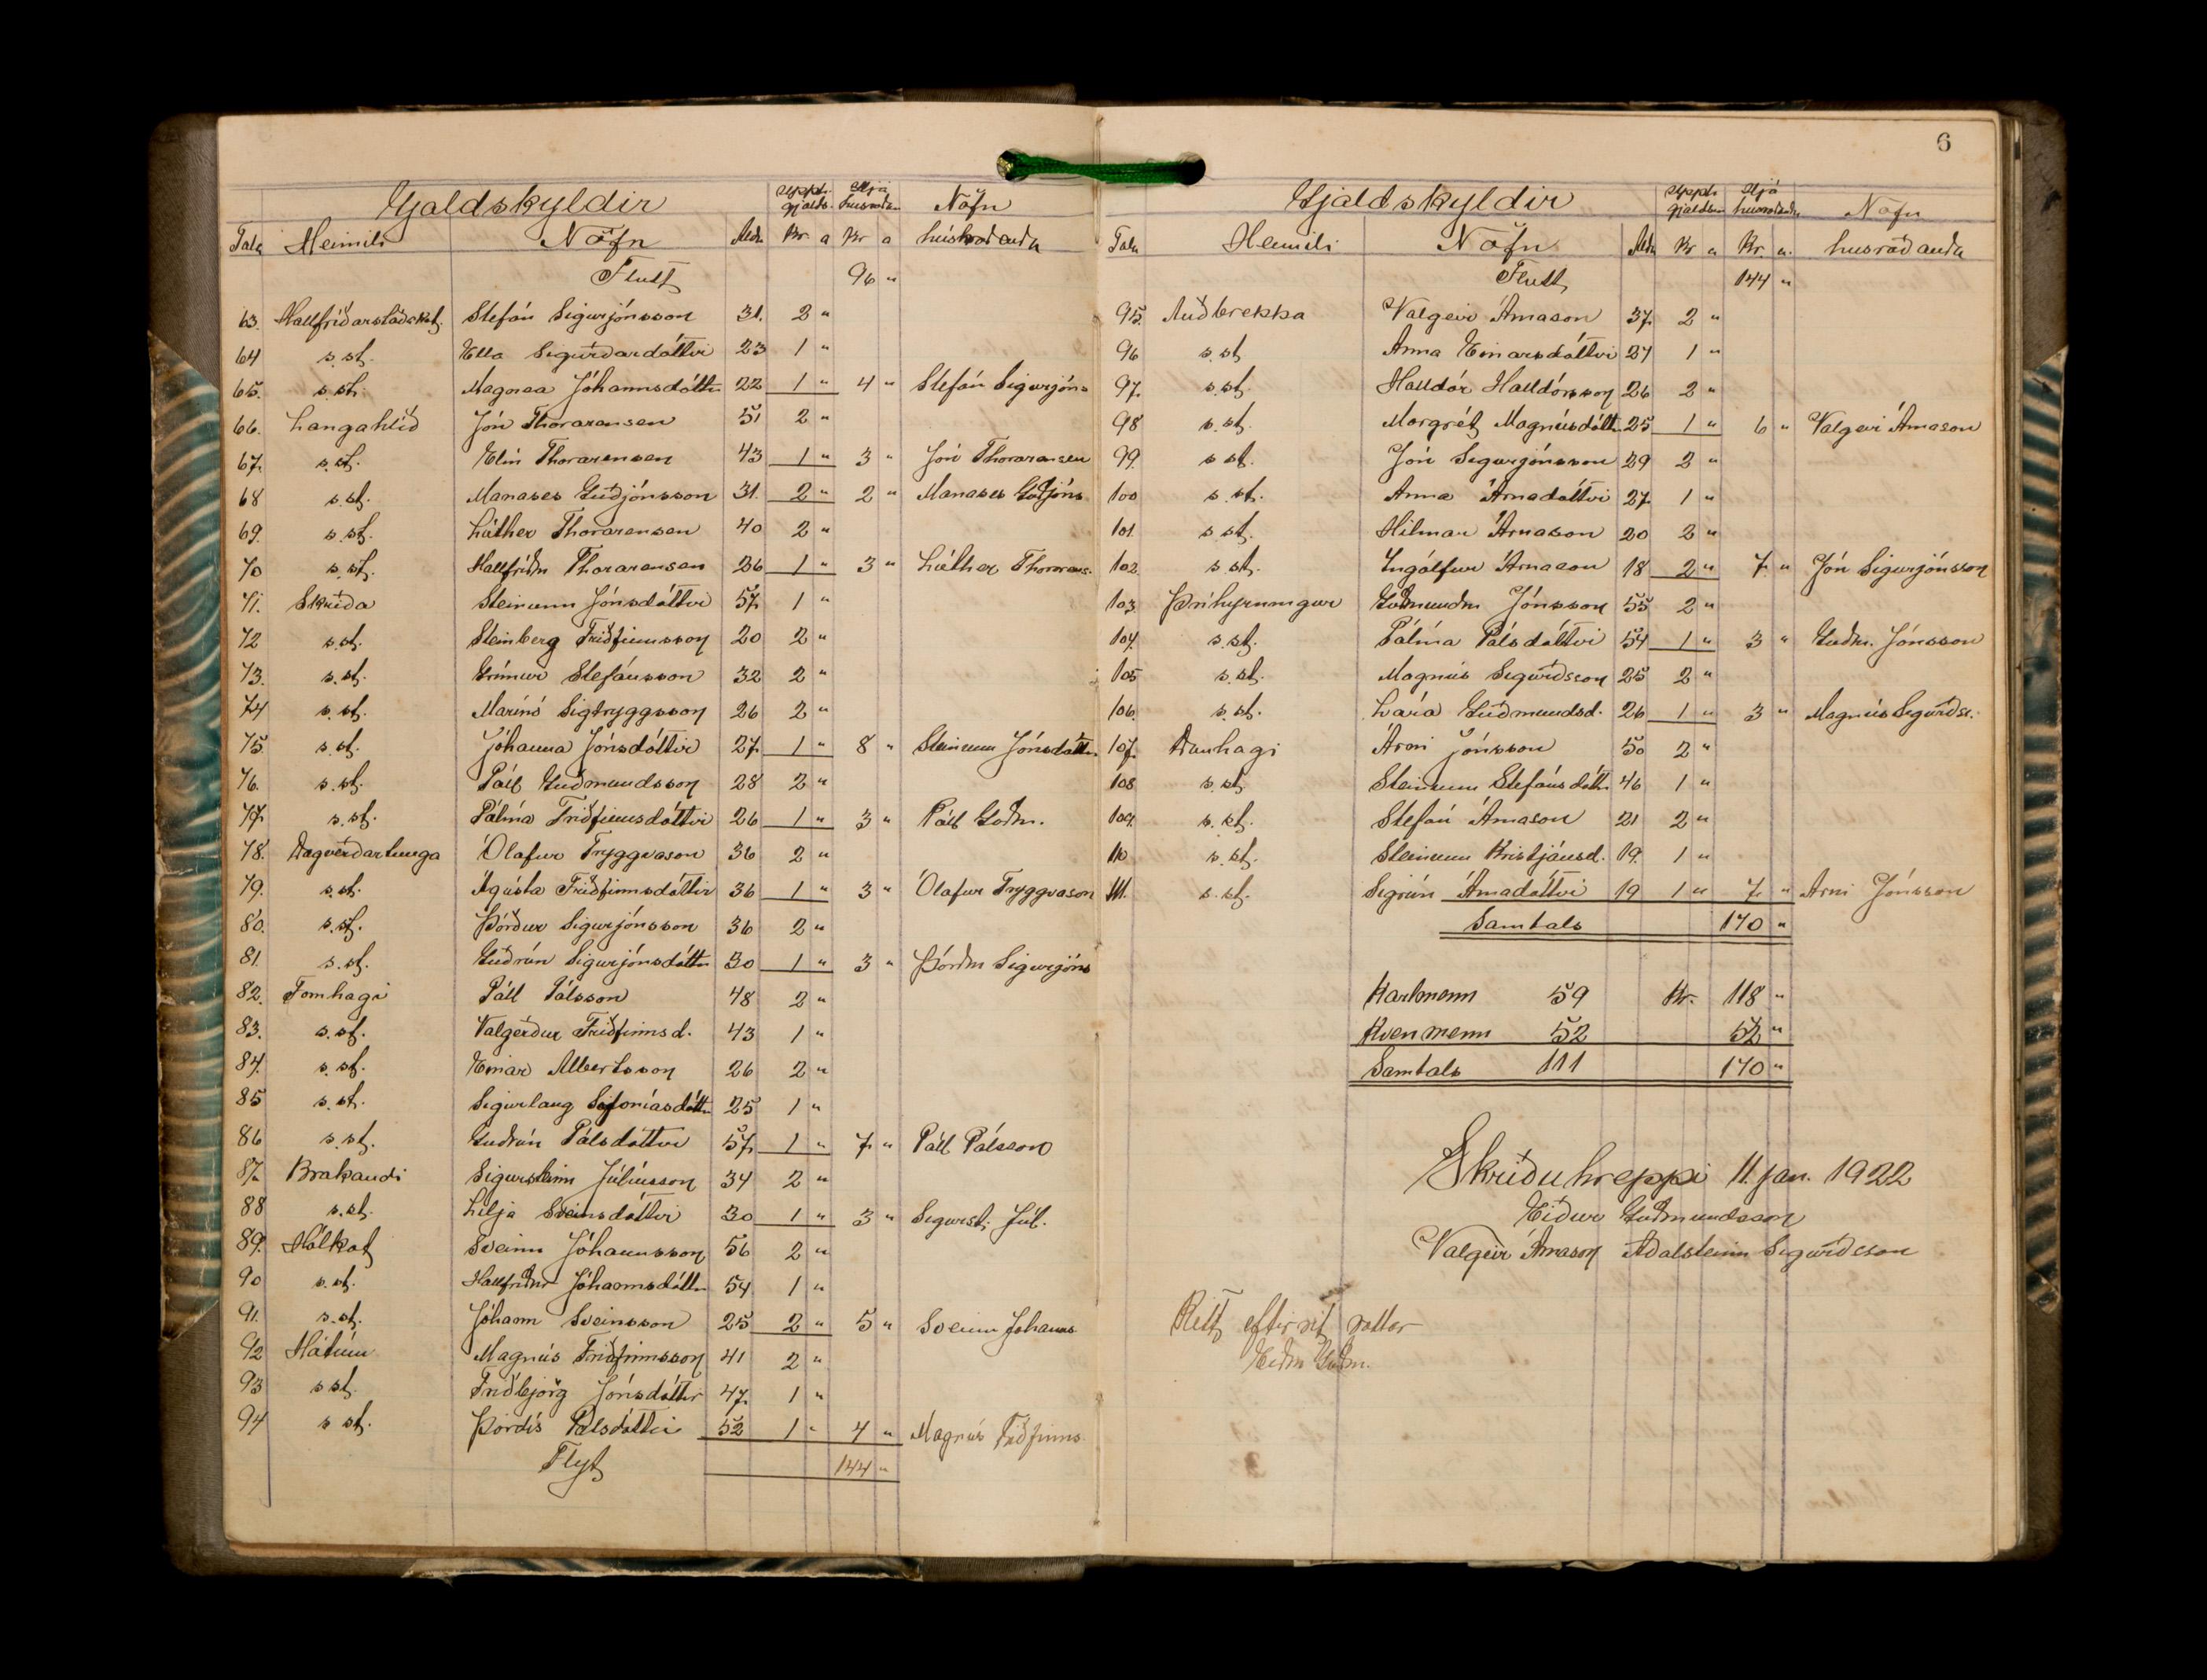 Gjaldskyldir
Upph. gjalds. Hjá húsráðan. Nöfn
Tala Heimili Nöfn Aldur Kr. a Kr a húsráðanda
Flutt 96 "
63. Hallfríðarstaðakot. Stefán Sigurjónsson 31. 2 "
64 s.st. Ella Sigurðardóttir 23 1 "
65. s.st. Magnea Jóhannsdóttir 22 1 " 4 " Stefán Sigurjóns
66. Langahlíð Jón Thorarensen 51 2 "
67. s.st. Elín Thorarensen 43 1 " 3 " Jón Thorarensen
68 s.st. Manases Guðjónsson 31. 2 " 2 " Manases Guðjóns
69. s.st. Lúther Thorarensen 40 2 "
70 s.st. Hallfríður Thorarensen 26 1 " 3 " Lúther Thorarens.
71. Skriða Steinunn Jónsdóttir 57. 1 "
72 s.st. Steinberg Friðfinnsson 20 2 "
73. s.st. Grímur Stefánsson 32 2 "
74 s.st. Marínó Sigtryggsson 26 2 "
75 s.st. Jóhanna Jónsdóttir 27. 1 " 8 " Steinunn Jónsdóttir
76. s.st. Páll Guðmundsson 28 2 "
77. s.st. Pálína Friðfinnsdóttir 26 1 " 3 " Páll Guðm.
78. Dagverðartunga Ólafur Tryggvason 36 2 "
79. s.st. Ágústa Friðfinnsdóttir 36 1 " 3 " Ólafur Tryggvason
80. s.st. Þórður Sigurjónsson 36 2 "
81. s.st. Guðrún Sigurjónsdóttir 30 1 " 3 " Þórður Sigurjóns
82. Fornhagi Páll Pálsson 48 2 "
83. s.st. Valgerður Friðfinnsd. 43 1 "
84. s.st. Einar Albertsson 26 2 "
85 s.st. Sigurlaug Sofoníasdóttir 25 1 "
86 s.st. Guðrún Pálsdóttir 57. 1 " 7 " Páll Pálsson
87. Brakandi Sigursteinn Júlíusson 34 2 "
88 s.st. Lilja Sveinsdóttir 30 1 " 3 " Sigurst. Júl.
89. Hólkot Sveinn Jóhannsson 56 2 "
90 s.st. Hallfríður Jóhannsdóttir 54 1 "
91. s.st. Jóhann Sveinsson 25 2 " 5 " Sveinn Jóhanns
92 Hátún Magnús Friðfinnsson 41 2 "
93 s.st. Friðbjörg Jónsdóttir 47. 1 "
94 s st. Þórdís Pálsdóttir 52 1 " 4 " Magnús Friðfinns
Flyt 144 "
6
Gjaldskyldir
Upph. gjaldsins Hjá húsráðanda Nöfn
Tala Heimili Nöfn Aldur Kr a Kr. a. húsráðanda
Flutt 144 "
95. Auðbrekka Valgeir Árnason 37. 2 "
96 s.st. Anna Einarsdóttir 27 1 "
97. s.st. Halldór Halldórsson 26 2 "
98 s.st. Margrét Magnúsdóttir 25 1 " 6 " Valgeir Árnason
99. s st. Jón Sigurjónsson 29 2 "
100 s.st. Anna Árnadóttir 27. 1 "
101. s st. Hilmar Árnason 20 2 "
102. s.st. Ingólfur Árnason 18 2 " 7. " Jón Sigurjónsson
103 Þríhyrningur Guðmundur Jónsson 55 2 "
104. s.st. Pálína Pálsdóttir 54 1 " 3 " Guðm. Jónsson
105 s.st. Magnús Sigurðsson 25 2 "
106. s.st. Lára Guðmundsd. 26 1 " 3 " Magnús Sigurðss.
107. Dunhagi Árni Jónsson 50 2 "
108 s.st. Steinunn Stefánsdóttir 46 1 "
109. s.st. Stefán Árnason 21 2 "
110 s.st. Steinunn Kristjánsd. 19. 1 "
111. s.st. Sigrún Árnadóttir 19 1 " 7. " Árni Jónsson
Samtals 170 "
Karlmenn 59 Kr. 118 "
Kvenmenn 52 52 "
Samtals 111 170 "
Skriðuhreppi 11. jan. 1922
Eiður Guðmundsson
Valgeir Árnason Aðalsteinn Sigurðsson
Rétt eftirrit vottar
Eiður Guðm.